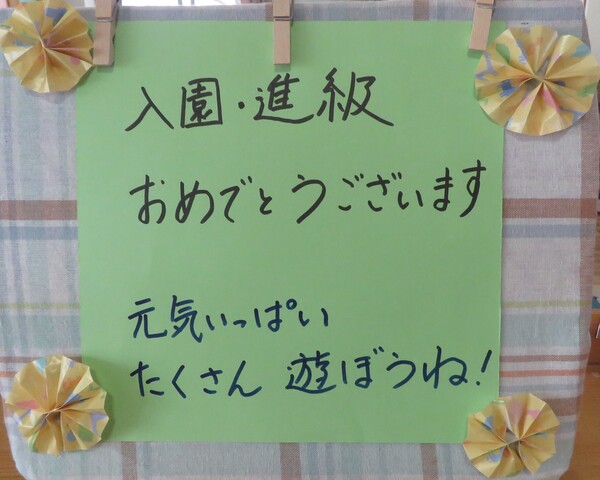 入園・進級
おめでとうございます
元気いっぱい
たくさん 遊ぼうね!